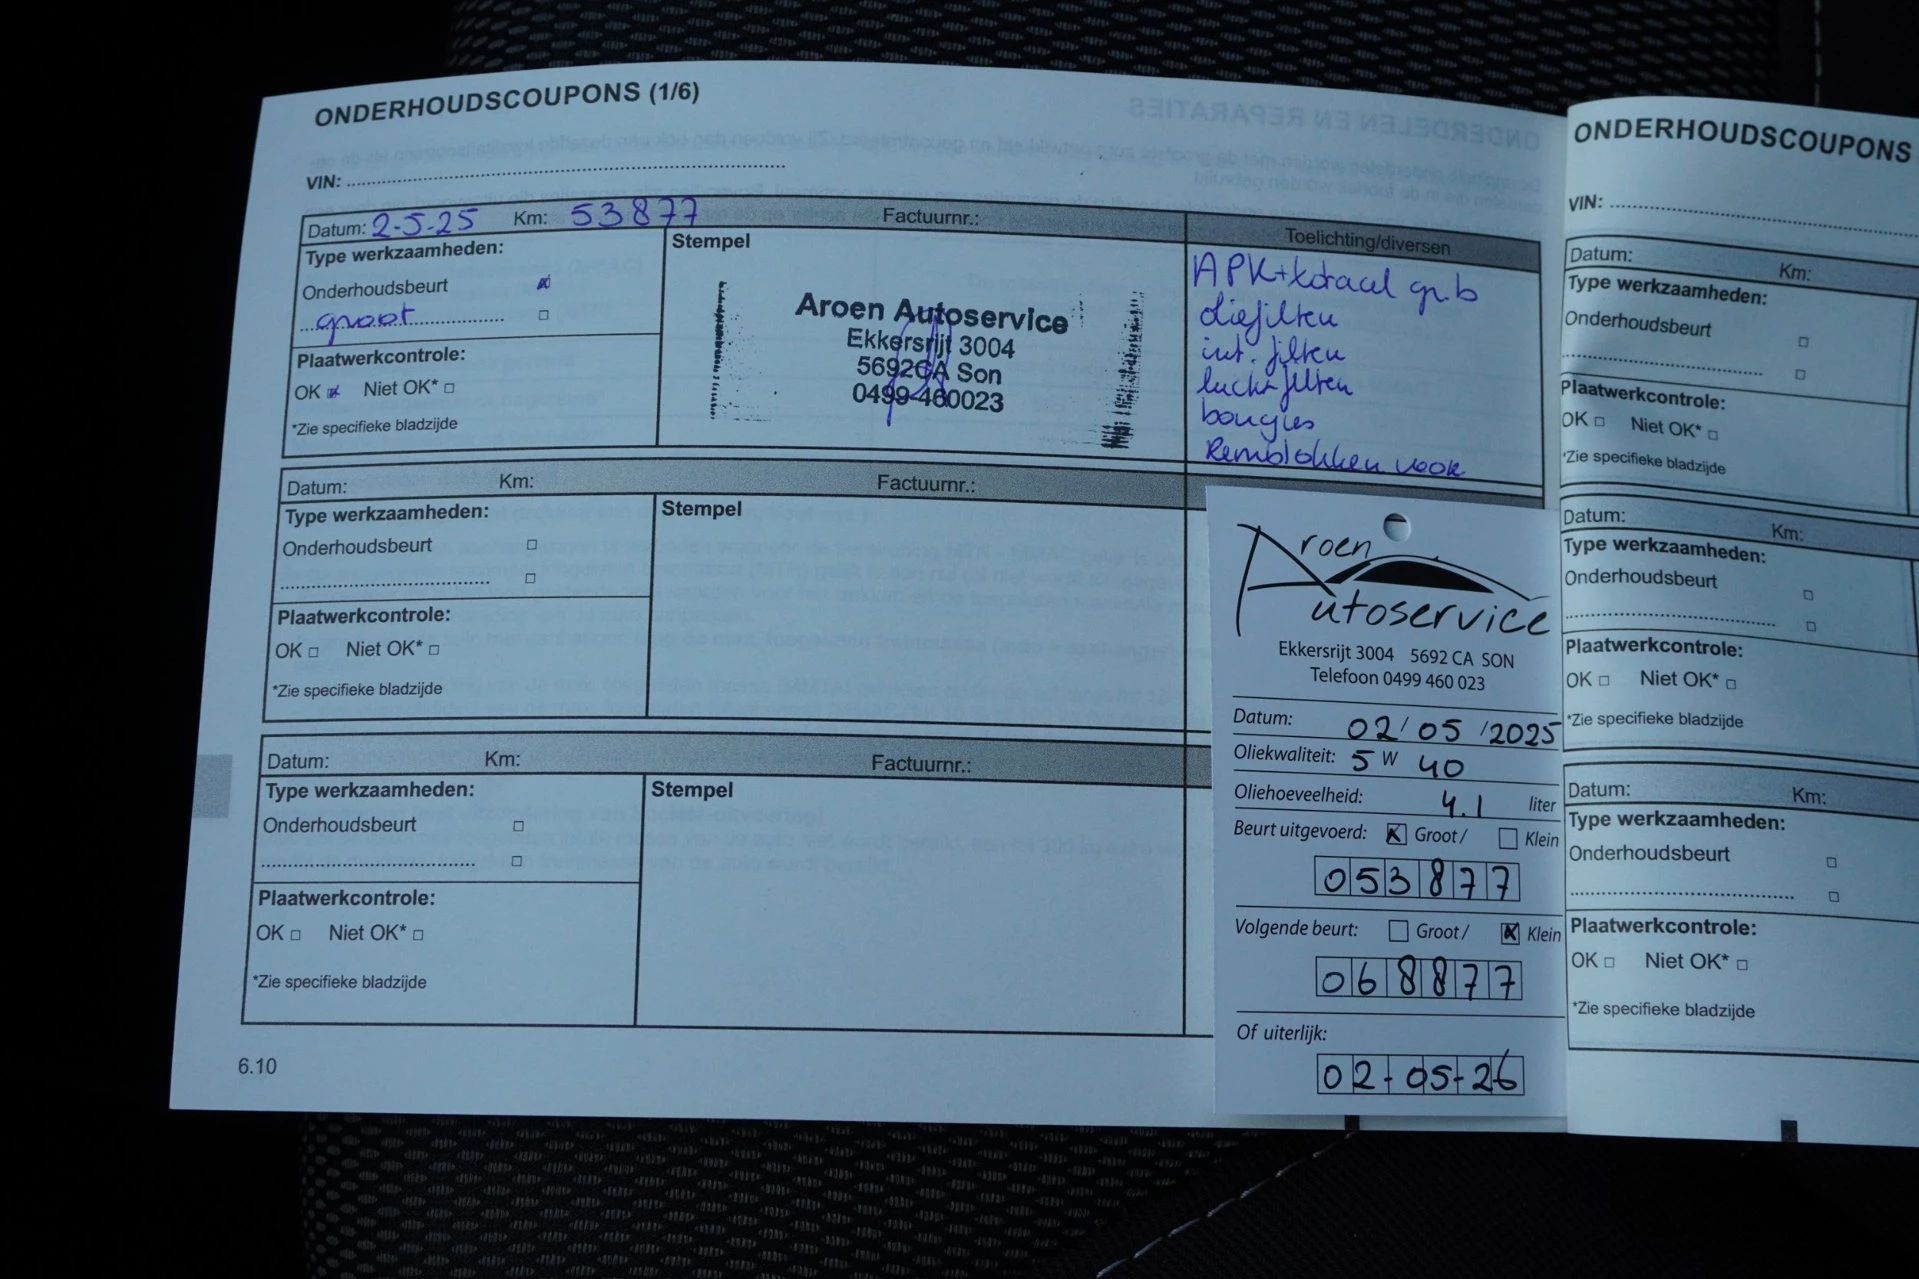 ONDERHOUDSCOUPONS (1/6)
VIN:
Datum: 2-5-25 Km: 53877 Factuurnr.:
Type werkzaamheden:
Onderhoudsbeurt
groot
Plaatwerkcontrole:
OK Niet OK*
*Zie specifieke bladzijde
Stempel
Aroen Autoservice
Ekkersrijt 3004
5692CA Son
0499-460023
Toelichting/diversen
APK + totaal gr.b
oliefilter
int. filter
luchtfilter
bougies
Remblokken voor
Datum: Km: Factuurnr.:
Type werkzaamheden:
Onderhoudsbeurt
Plaatwerkcontrole:
OK Niet OK*
*Zie specifieke bladzijde
Stempel
Datum: Km: Factuurnr.:
Type werkzaamheden:
Onderhoudsbeurt
Plaatwerkcontrole:
OK Niet OK*
*Zie specifieke bladzijde
Stempel
6.10
Aroen
Autoservice
Ekkersrijt 3004 5692 CA SON
Telefoon 0499 460 023
Datum: 02/05/2025
Oliekwaliteit: 5 W 40
Oliehoeveelheid: 4.1 liter
Beurt uitgevoerd: Groot / Klein
053877
Volgende beurt: Groot / Klein
068877
Of uiterlijk:
02-05-26
ONDERHOUDSCOUPONS
VIN:
Datum: Km:
Type werkzaamheden:
Onderhoudsbeurt
Plaatwerkcontrole:
OK Niet OK*
*Zie specifieke bladzijde
Datum: Km:
Type werkzaamheden:
Onderhoudsbeurt
Plaatwerkcontrole:
OK Niet OK*
*Zie specifieke bladzijde
Datum: Km:
Type werkzaamheden:
Onderhoudsbeurt
Plaatwerkcontrole:
OK Niet OK*
*Zie specifieke bladzijde